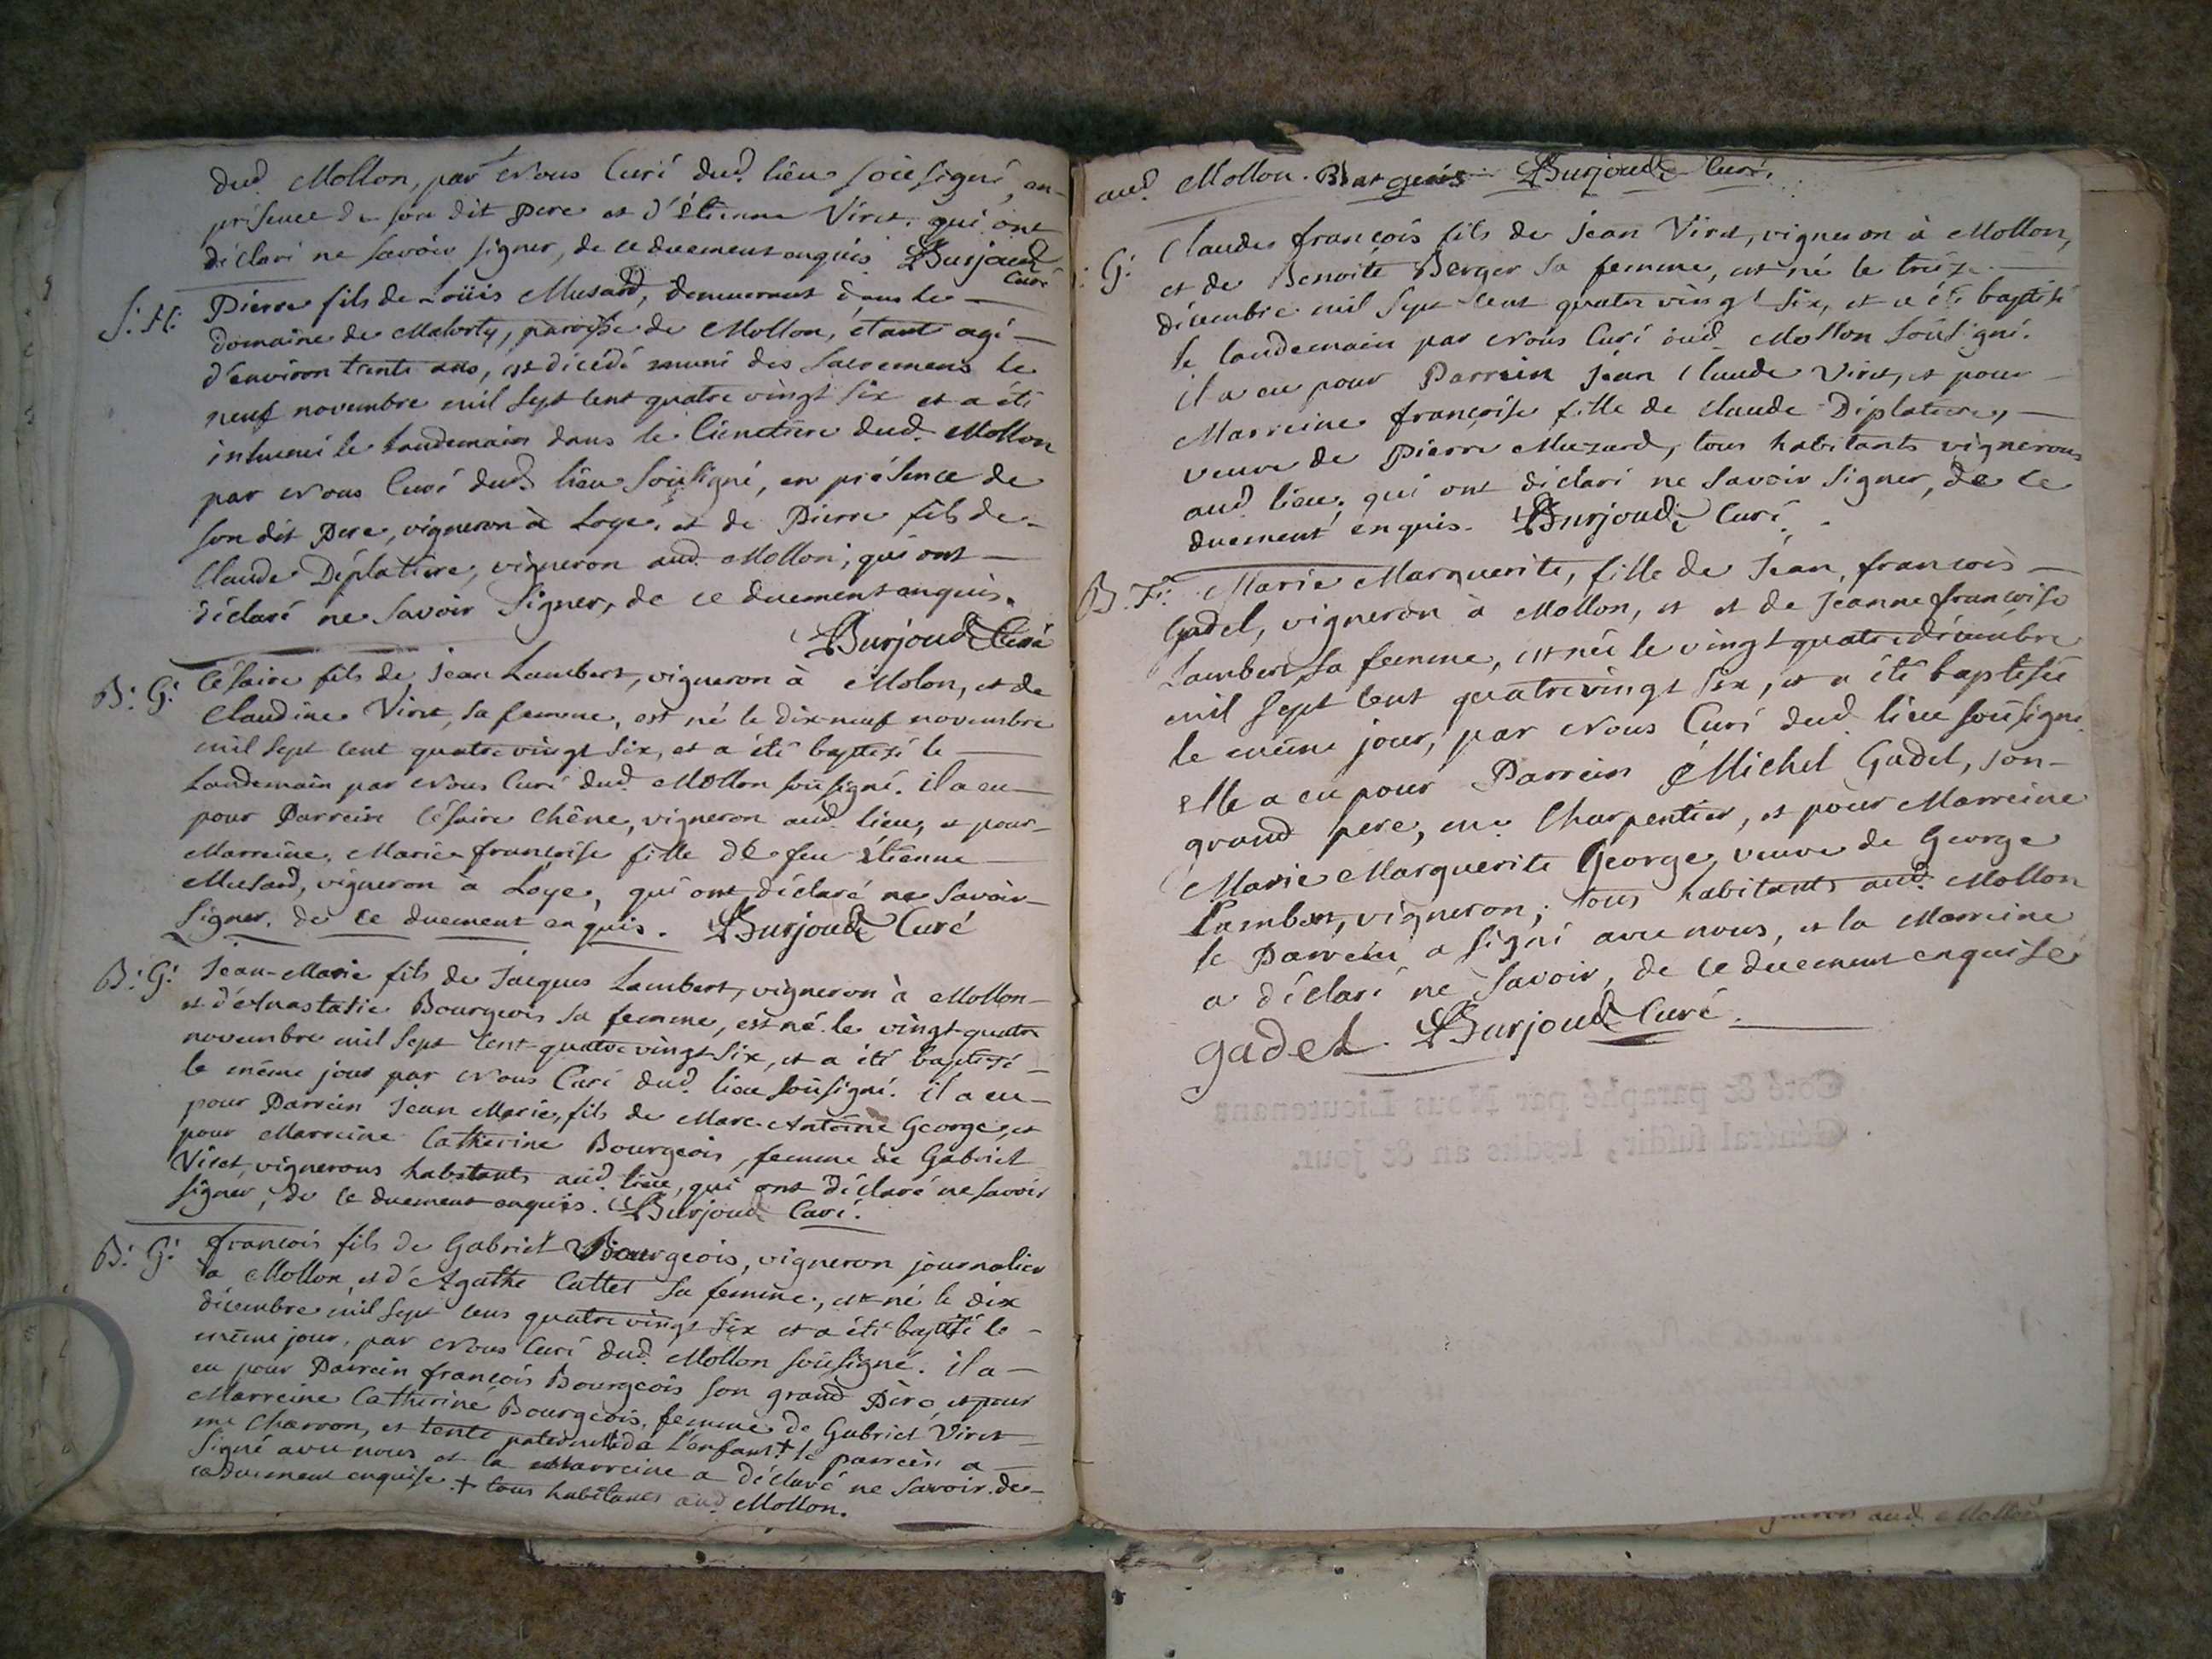 dud. Mollon, par Nous Curé dud. lieu soûsigné, en
présence de son dit Pere et d'étienne Viret, qui ont
déclaré ne savoir signer, de ce duement enquis. Burjoud
Curé
S. H: Pierre fils de Loüis Musard, demeurant dans le
domaine de Malorty, paroisse de Mollon, étant agé
d'environ trente ans, est décédé muni des sacremens le
neuf novembre mil sept cent quatre vingt six et a été
inhumé le landemain dans le Cimetiere dud. Mollon
par Nous Curé dud. lieu soûsigné, en présence de
son dit Pere, vigneron à Loye, et de Pierre fils de
Claude Déplatiere, vigneron aud. Mollon; qui ont
déclaré ne savoir signer, de ce duement enquis.
Burjoud Curé
B: G: Césaire fils de Jean Lambert, vigneron à Molon, et de
Claudine Viret, sa femme, est né le dix-neuf novembre
mil sept cent quatre vingt six, et a été baptisé le
landemain par Nous Curé dud. Mollon soûsigné. il a eu
pour Parrein Césaire Chêne, vigneron aud. lieu, et pour
Marreine, Marie françoise fille de feu étienne
Musard, vigneron à Loye, qui ont déclaré ne savoir
signer, de ce duement enquis. Burjoud Curé
B: G: Jean-Marie fils de Jacques Lambert, vigneron à Mollon
et d'Anastasie Bourgeois sa femme, est né le vingt-quatre
novembre mil sept cent quatre vingt six, et a été baptisé
le même jour par Nous Curé dud. lieu soûsigné. il a eu
pour Parrein Jean Marie, fils de Marc Antoine George, et
pour Marreine Catherine Bourgeois, femme de Gabriel
Viret, vignerons habitants aud. lieu, qui ont déclaré ne savoir
signer, de ce duement enquis. Burjoud Curé.
B: G: françois fils de Gabriel Bourgeois, vigneron journalier
à Mollon, et d'Agathe Cattet sa femme, est né le dix
décembre mil sept cens quatre vingt six et a été baptisé le
même jour, par Nous Curé dud. Mollon soûsigné. il a
eu pour Parrein françois Bourgeois son grand Père, et pour
Marreine Catherine Bourgeois, femme de Gabriel Viret
me Charron, et tente paternelle de l'enfant + le parrein a
signé avec nous et la Marreine a déclaré ne savoir de
ce duement enquise. + tous habitants aud. Mollon.
aud. Mollon. Burjoud Curé.
: G: Claude françois fils de Jean Viret, vigneron à Mollon,
et de Benoite Berger sa femme, est né le treize
décembre mil sept cent quatre vingt six, et a été baptisé
le landemain par Nous Curé dud. Mollon soûsigné.
il a eu pour Parrein Jean Claude Viret, et pour
Marreine françoise fille de Claude Déplatiere,
veuve de Pierre Muzard, tous habitants vignerons
aud. lieu, qui ont déclaré ne savoir signer, de ce
duement enquis. Burjoud Curé.
B. F: Marie Marguerite, fille de Jean, françois
Gadel, vigneron à Mollon, et et de Jeanne françoise
Lambert, sa femme, est née le vingt quatre décembre
mil sept cent quatre vingt six, et a été baptisée
le même jour, par Nous Curé dud. lieu soûsigné
elle a eu pour Parrein Michel Gadel, son
grand pere, me Charpentier, et pour Marreine
Marie Marguerite George, veuve de George
Lambert, vigneron; tous habitants aud. Mollon
le Parrein a signé avec nous, et la Marreine
a déclaré ne savoir, de ce duement enquise
gadel. Burjoud Curé.
Coté & paraphé par Nous Lieutenant
Général susdit, lesdits an & jour.
aud. Mollon